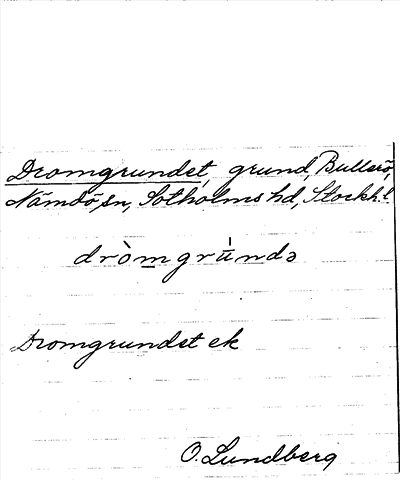 Dromgrundet, grund, Bullerö,
Nämdö sn, Sotholms hd, Stockh. l.
dròmgrúndə
Dromgrundet ek
O. Lundberg